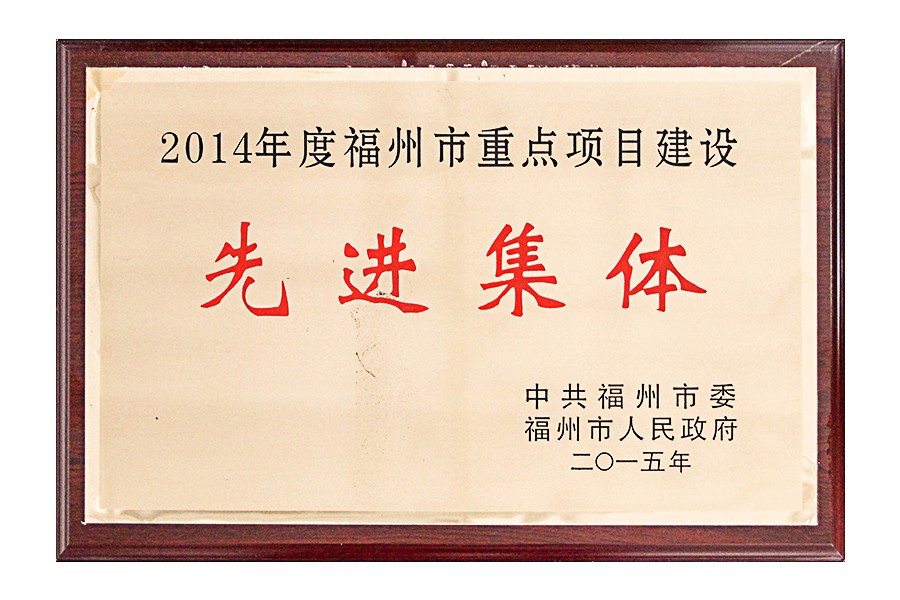 2014年度福州市重点项目建设
先进集体
中共福州市委
福州市人民政府
二〇一五年